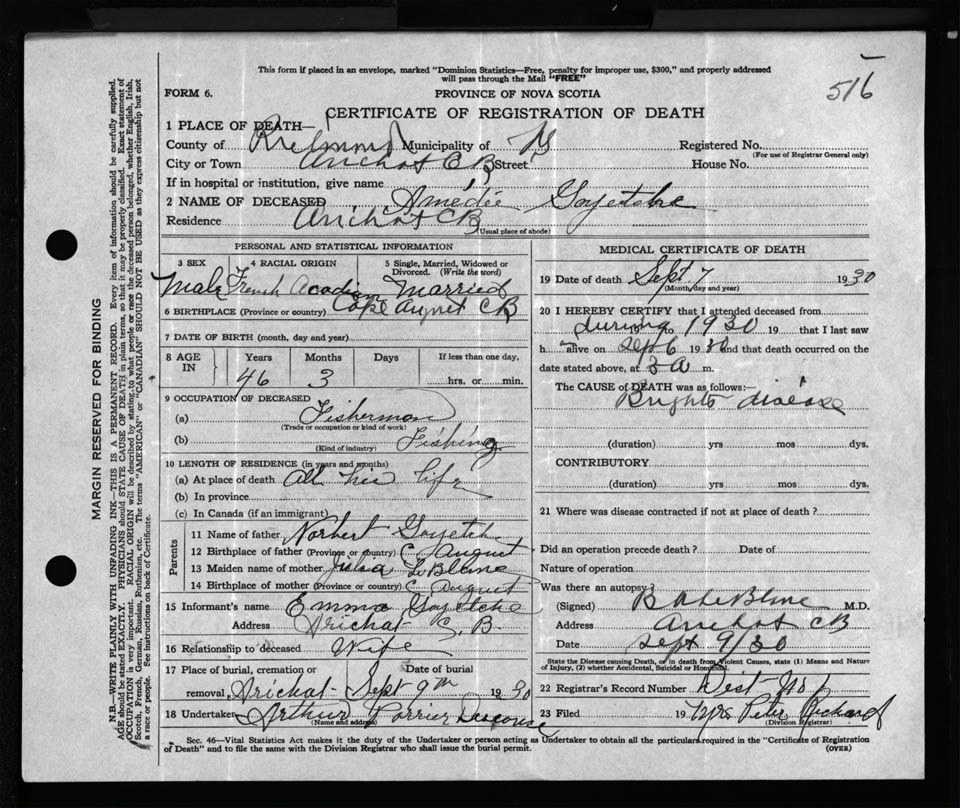 516
This form if placed in an envelope, marked "Dominion Statistics—Free, penalty for improper use, $300," and properly addressed
will pass through the Mail "FREE"
FORM 6. PROVINCE OF NOVA SCOTIA
CERTIFICATE OF REGISTRATION OF DEATH
1 PLACE OF DEATH—
County of Richmond Municipality of Registered No.
(For use of Registrar General only)
City or Town Arichat C B Street, House No.
If in hospital or institution, give name
2 NAME OF DECEASED Amédie Goyetche
Residence Arichat CB
(Usual place of abode)
PERSONAL AND STATISTICAL INFORMATION
3 SEX 4 RACIAL ORIGIN 5 Single, Married, Widowed or
Divorced. (Write the word)
Male French Acadian Married
6 BIRTHPLACE (Province or country) Cape Auguet CB
7 DATE OF BIRTH (month, day and year)
8 AGE IN Years Months Days If less than one day,
46 3 hrs. or min.
9 OCCUPATION OF DECEASED
(a) Fisherman
(Trade or occupation or kind of work)
(b) Fishing
(Kind of industry)
10 LENGTH OF RESIDENCE (in years and months)
(a) At place of death All his life
(b) In province
(c) In Canada (if an immigrant)
Parents
11 Name of father Norbert Goyetch
12 Birthplace of father (Province or country) C. August
13 Maiden name of mother Julia LeBlanc
14 Birthplace of mother (Province or country) C. August
15 Informant's name Emma Goyetche
Address Arichat C. B.
16 Relationship to deceased Wife
17 Place of burial, cremation or Date of burial
removal Arichat - Sept 9th 1930
18 Undertaker Arthur Porrier Descousse
(Name and address)
MEDICAL CERTIFICATE OF DEATH
19 Date of death Sept 7 1930
(Month, day and year)
20 I HEREBY CERTIFY that I attended deceased from
during 19 to 1930 19 that I last saw
h alive on Sept 6 1930 and that death occurred on the
date stated above, at 3 a m.
The CAUSE OF DEATH was as follows:—
Brights disease
(duration) yrs mos dys.
CONTRIBUTORY
(duration) yrs mos dys.
21 Where was disease contracted if not at place of death?
Did an operation precede death? Date of
Nature of operation
Was there an autopsy?
(Signed) LeBlanc M.D.
Address Arichat CB
Date Sept 9/30
State the Disease causing Death, or in death from Violent Causes, state (1) Means and Nature
of Injury, (2) whether Accidental, Suicidal or Homicidal.
22 Registrar's Record Number Dist No 1
23 Filed 19 Mrs Peter Richard
(Division Registrar)
Sec. 46—Vital Statistics Act makes it the duty of the Undertaker or person acting as Undertaker to obtain all the particulars required in the "Certificate of Registration
of Death" and to file the same with the Division Registrar who shall issue the burial permit. (OVER)
MARGIN RESERVED FOR BINDING
N.B.—WRITE PLAINLY WITH UNFADING INK—THIS IS A PERMANENT RECORD. Every item of information should be carefully supplied.
AGE should be stated EXACTLY. PHYSICIANS should STATE CAUSE OF DEATH in plain terms, so that it may be properly classified. Exact statement of
OCCUPATION is very important. RACIAL ORIGIN will be described by stating to what people or race the deceased person belonged, whether English, Irish,
Scotch, French, German, Russian, Ruthenian, etc. The terms "AMERICAN" or "CANADIAN" SHOULD NOT BE USED as they express citizenship but not
a race or people. See instructions on back of Certificate.